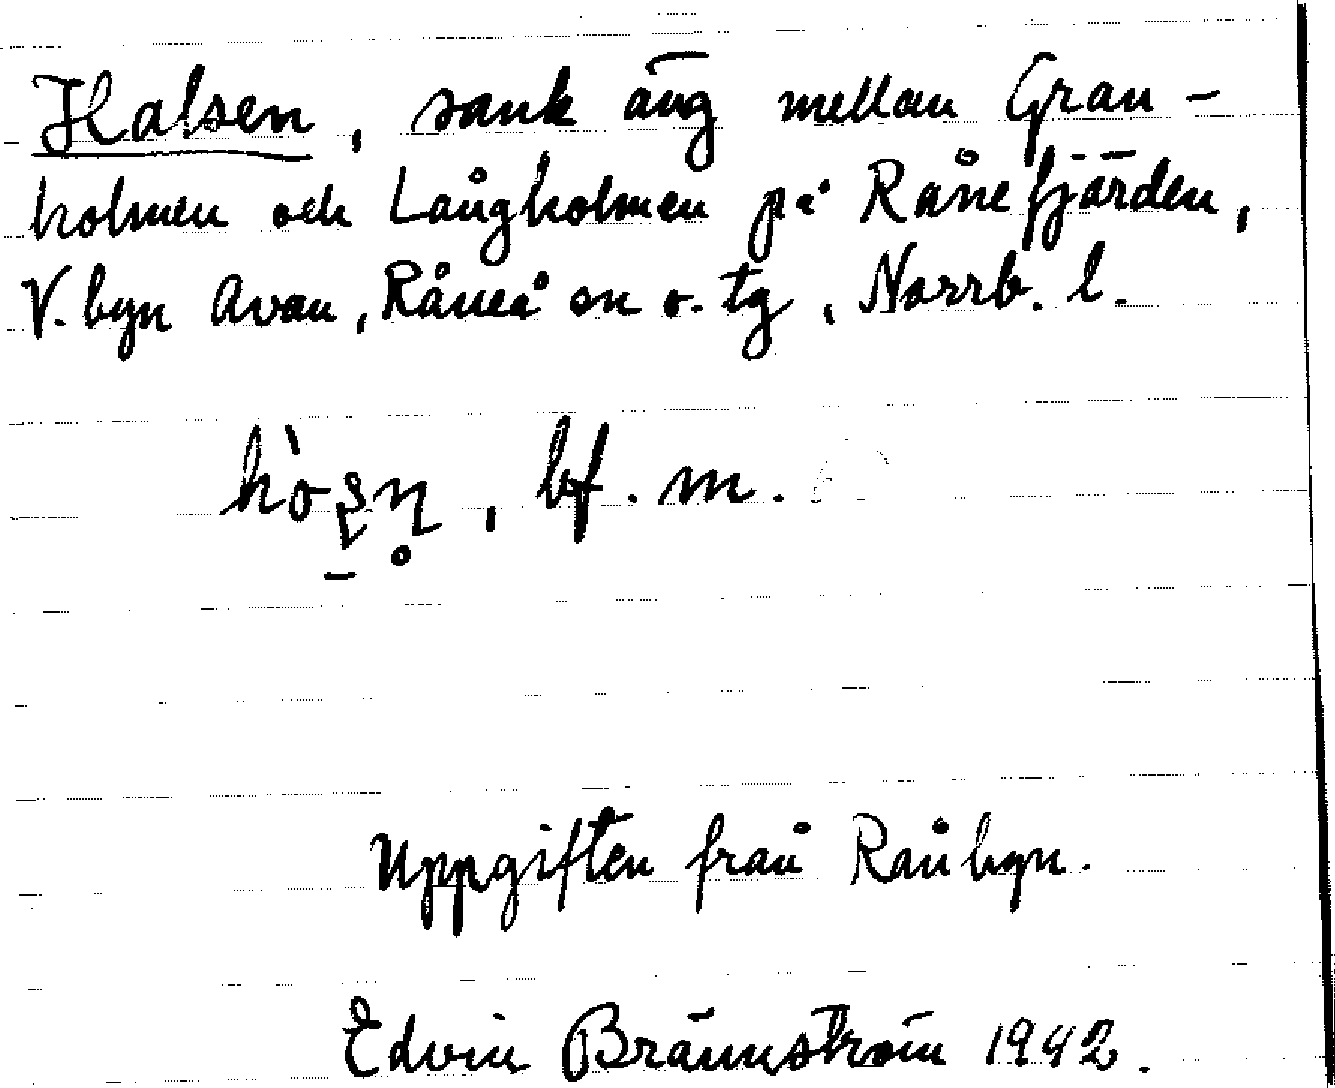 Halsen, sank äng mellan Gran-
holmen och Långholmen på Rånefjärden,
V. byn Avan, Råneå sn o. tg, Norrb. l.
bf. m.
Uppgiften från Rånbyn.
Edvin Brännström 1942.